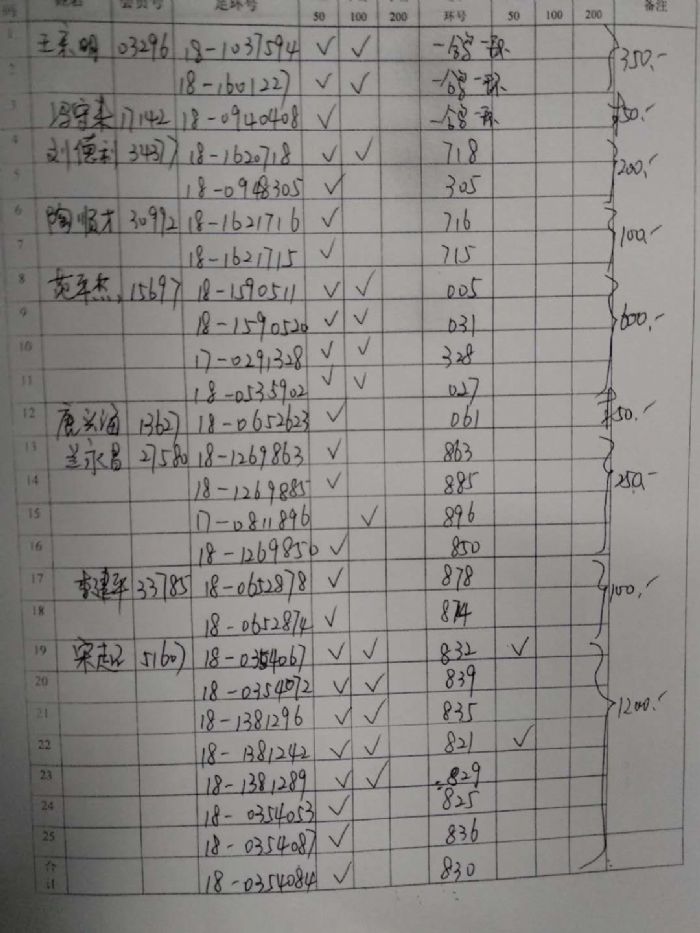 码 姓名 会员号 足环号 50 100 200 环号 50 100 200 备注
1 王宗明 03296 18-1037594 ✓ ✓ 一鸽一环 350.-
2 18-1601227 ✓ ✓ 一鸽一环
3 17142 18-0940408 ✓ 一鸽一环 50.-
4 刘德利 34377 18-1620718 ✓ ✓ 718 200.-
5 18-0948305 ✓ 305
6 陶顺才 30992 18-1621716 ✓ 716 100.-
7 18-1621715 ✓ 715
8 范军杰 15697 18-1590511 ✓ ✓ 005 600.-
9 18-1590520 ✓ ✓ 031
10 17-0291328 ✓ ✓ 328
11 18-0535902 ✓ ✓ 027
12 13627 18-0652623 ✓ 061 50.-
13 兰永昌 27580 18-1269863 ✓ 863 250.-
14 18-1269885 ✓ 885
15 17-0811896 ✓ 896
16 18-1269850 ✓ 850
17 李建平 33785 18-0652878 ✓ 878 100.-
18 18-0652874 ✓ 874
19 51607 18-0354067 ✓ ✓ 832 ✓ 1200.-
20 18-0354072 ✓ ✓ 839
21 18-1381296 ✓ ✓ 835
22 18-1381242 ✓ ✓ 821 ✓
23 18-1381289 ✓ ✓ 829
24 18-0354053 ✓ 825
25 18-0354087 ✓ 836
合计 18-0354084 ✓ 830